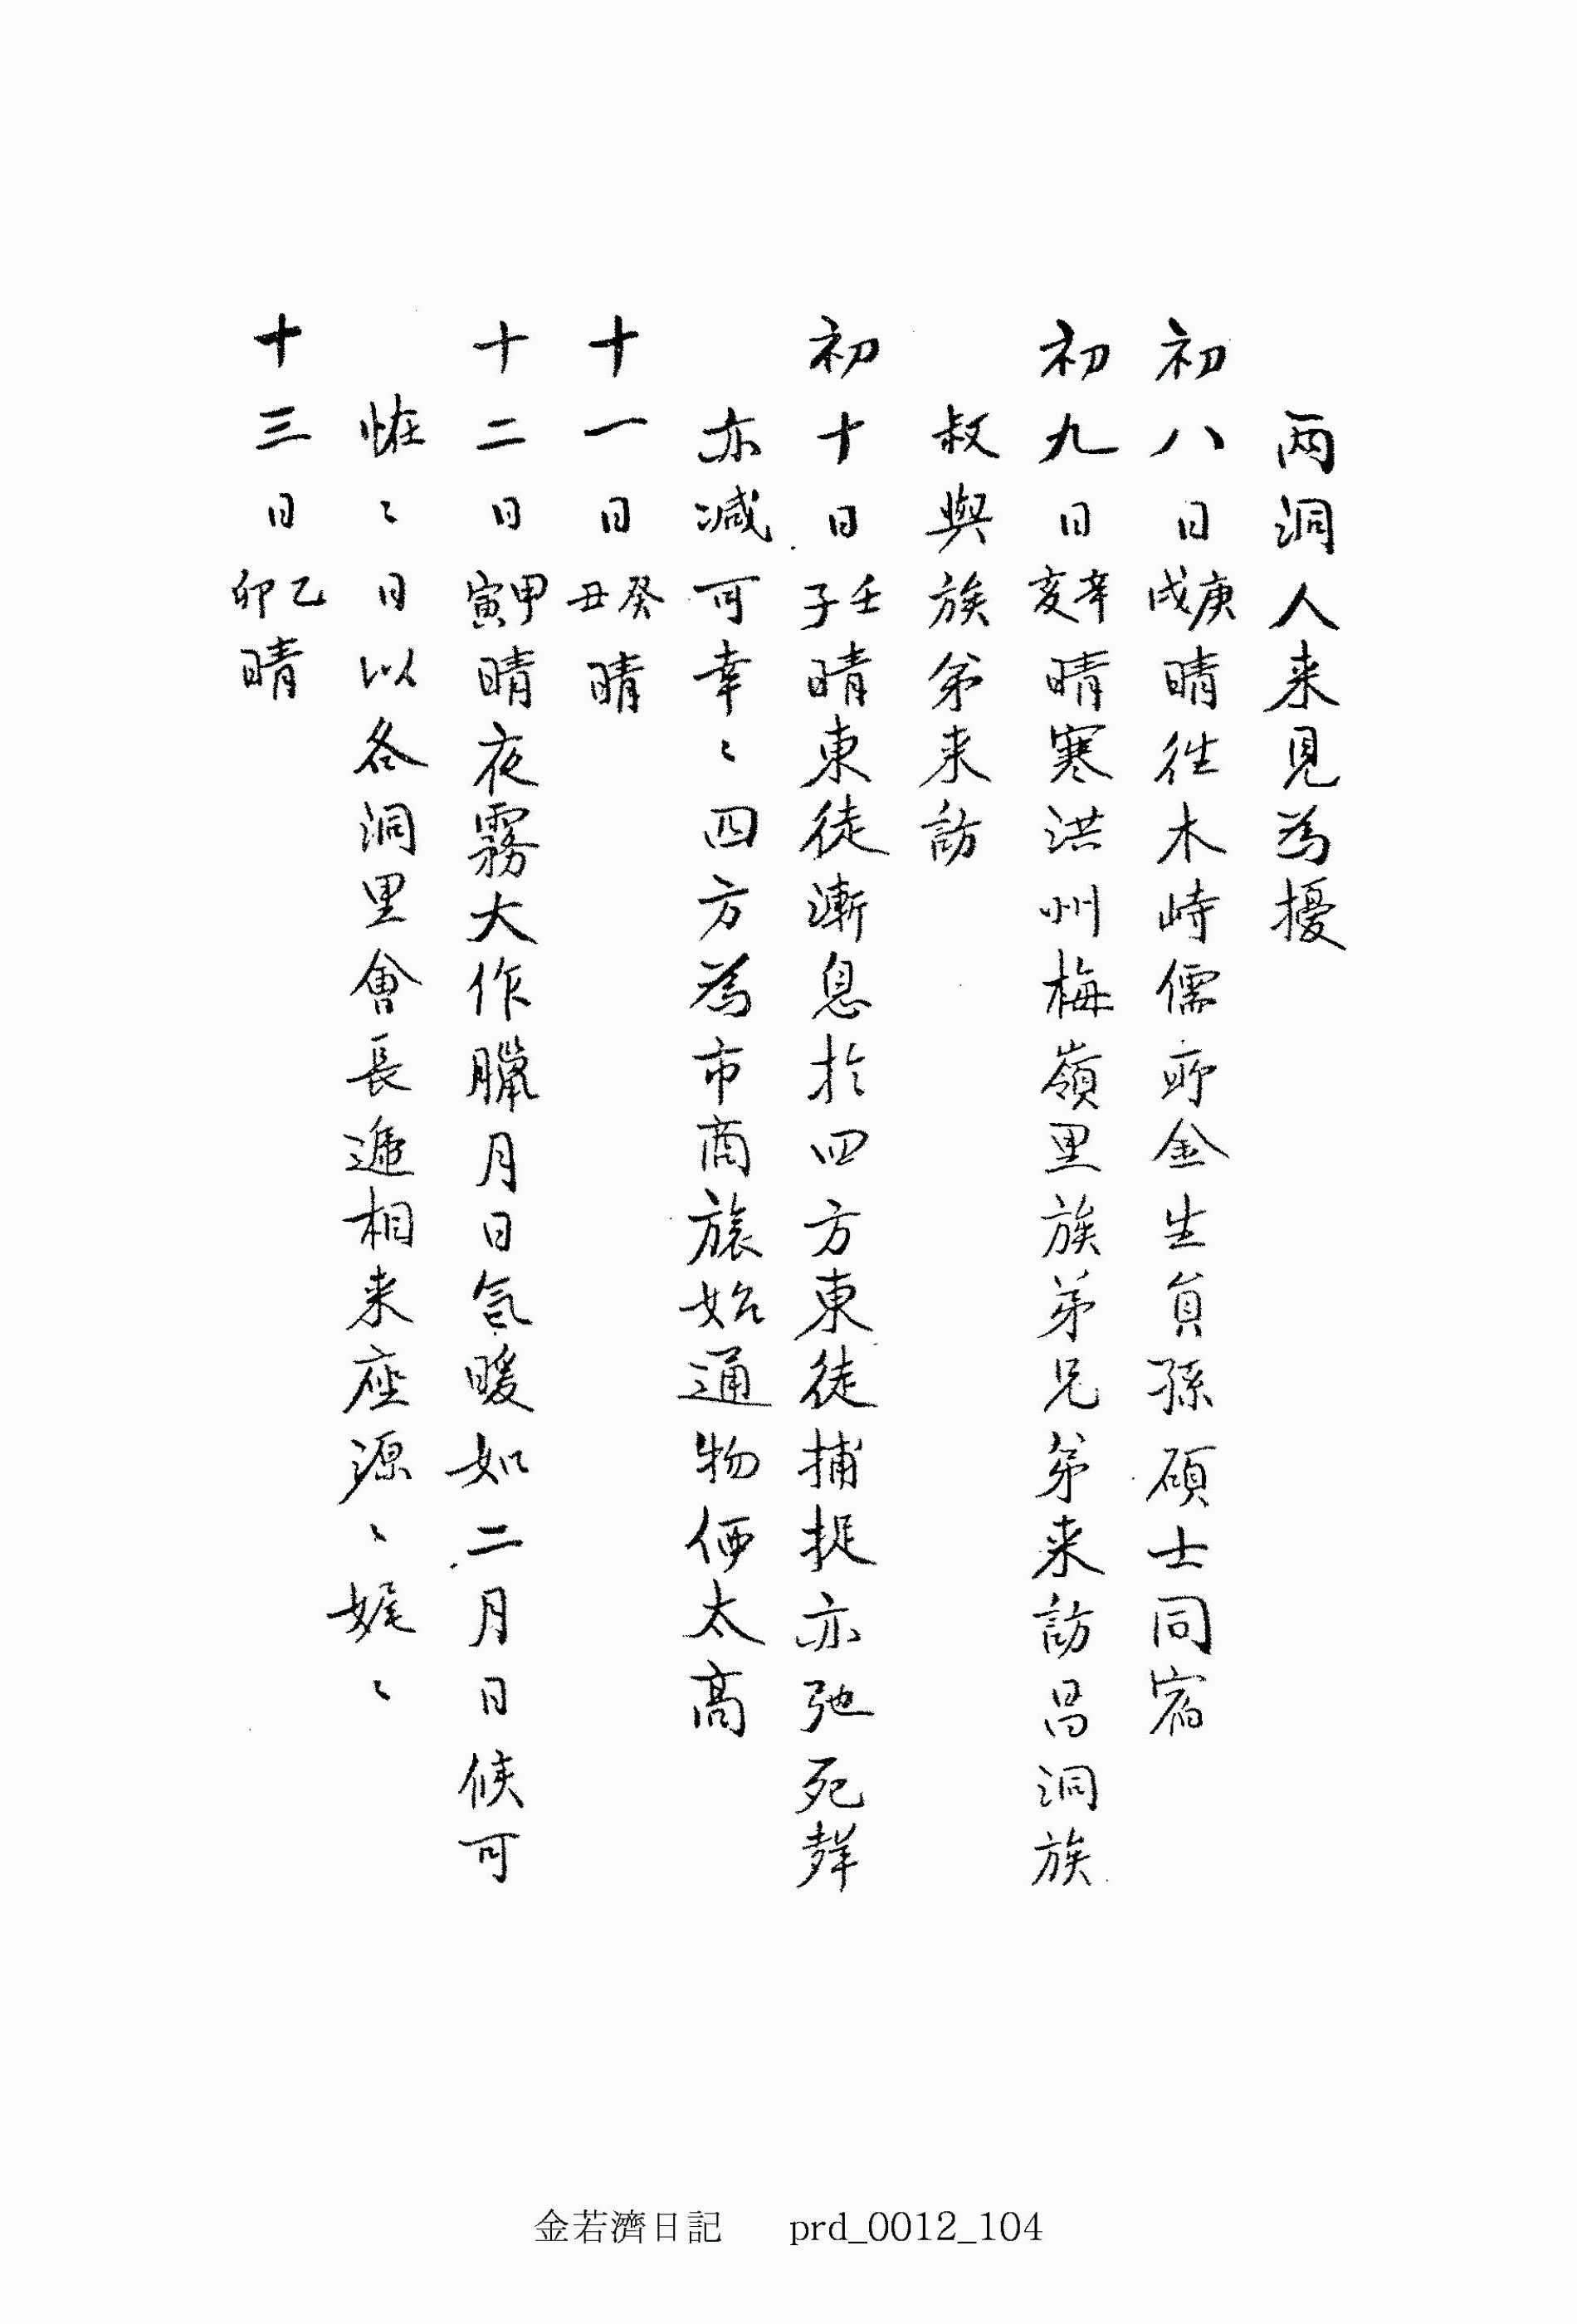 两洞人来見為擾
初八日庚戌晴徃木峙儒所金生員孫碩士同宿
初九日辛亥晴寒洪州梅嶺里族弟兄弟来訪昌洞族
叔與族弟来訪
初十日壬子晴東徒漸息於四方東徒捕捉亦弛死聲
亦减可幸〻四方為市商旅始通物価太高
十一日癸丑晴
十二日甲寅晴夜霧大作臘月日氣暖如二月日候可
恠〻日以各洞里會長遞相来座源〻娓〻
十三日乙卯晴
金若濟日記 prd_0012_104